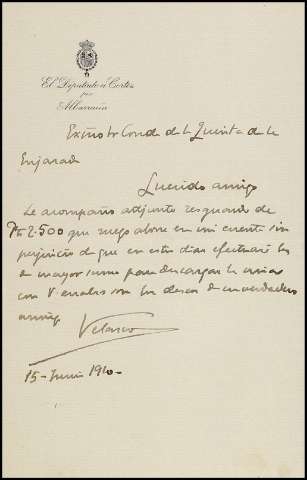 El Diputado a Cortes
por
Albarracín
Exmo Sr Conde de la Quinta de la
Enjarada
Querido amigo
Le acompaño adjunto resguardo de
Pts 2.500 que ruego abone en mi cuenta sin
perjuicio de que en estos dias efectuaré
de mayor suma para descargar la mia
con V. son los deseos de su verdadero
amigo
Velasco
15 - Junio 1910 -